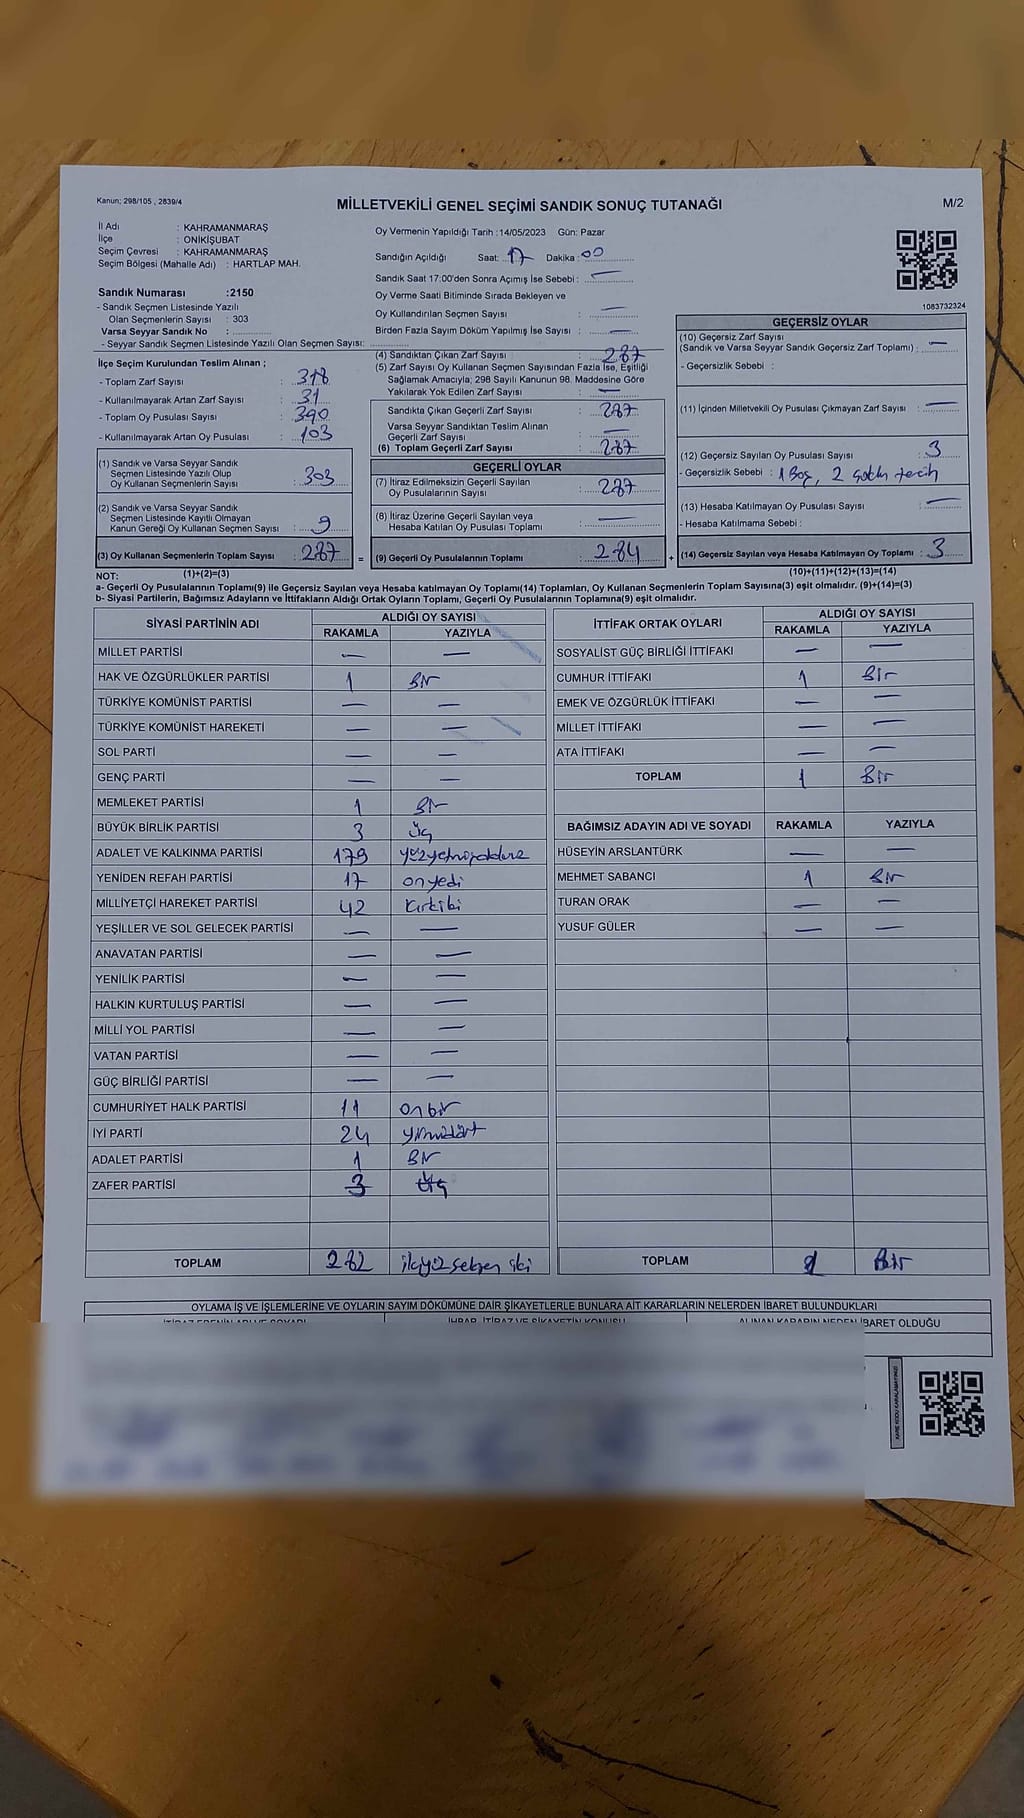 Kanun; 298/105 , 2839/4
MİLLETVEKİLİ GENEL SEÇİMİ SANDIK SONUÇ TUTANAĞI
M/2
İl Adı : KAHRAMANMARAŞ
İlçe : ONİKİŞUBAT
Seçim Çevresi : KAHRAMANMARAŞ
Seçim Bölgesi (Mahalle Adı) : HARTLAP MAH.
Oy Vermenin Yapıldığı Tarih :14/05/2023 Gün: Pazar
Sandığın Açıldığı Saat: 17 Dakika : 00
Sandık Saat 17:00'den Sonra Açımış İse Sebebi : —
Oy Verme Saati Bitiminde Sırada Bekleyen ve
Oy Kullandırılan Seçmen Sayısı : —
Birden Fazla Sayım Döküm Yapılmış İse Sayısı : —
1083732324
Sandık Numarası :2150
- Sandık Seçmen Listesinde Yazılı
Olan Seçmenlerin Sayısı : 303
Varsa Seyyar Sandık No :
- Seyyar Sandık Seçmen Listesinde Yazılı Olan Seçmen Sayısı:
İlçe Seçim Kurulundan Teslim Alınan ;
- Toplam Zarf Sayısı : 318
- Kullanılmayarak Artan Zarf Sayısı : 31
- Toplam Oy Pusulası Sayısı : 390
- Kullanılmayarak Artan Oy Pusulası : 103
(1) Sandık ve Varsa Seyyar Sandık
Seçmen Listesinde Yazılı Olup
Oy Kullanan Seçmenlerin Sayısı : 303
(2) Sandık ve Varsa Seyyar Sandık
Seçmen Listesinde Kayıtlı Olmayan
Kanun Gereği Oy Kullanan Seçmen Sayısı : 9
(3) Oy Kullanan Seçmenlerin Toplam Sayısı : 287
(1)+(2)=(3)
(4) Sandıktan Çıkan Zarf Sayısı : 287
(5) Zarf Sayısı Oy Kullanan Seçmen Sayısından Fazla İse, Eşitliği
Sağlamak Amacıyla; 298 Sayılı Kanunun 98. Maddesine Göre
Yakılarak Yok Edilen Zarf Sayısı : —
Sandıkta Çıkan Geçerli Zarf Sayısı : 287
Varsa Seyyar Sandıktan Teslim Alınan
Geçerli Zarf Sayısı : —
(6) Toplam Geçerli Zarf Sayısı : 287
GEÇERLİ OYLAR
(7) İtiraz Edilmeksizin Geçerli Sayılan
Oy Pusulalarının Sayısı : 287
(8) İtiraz Üzerine Geçerli Sayılan veya
Hesaba Katılan Oy Pusulası Toplamı : —
= (9) Geçerli Oy Pusulalarının Toplamı : 284
GEÇERSİZ OYLAR
(10) Geçersiz Zarf Sayısı
(Sandık ve Varsa Seyyar Sandık Geçersiz Zarf Toplamı) : —
- Geçersizlik Sebebi :
(11) İçinden Milletvekili Oy Pusulası Çıkmayan Zarf Sayısı : —
(12) Geçersiz Sayılan Oy Pusulası Sayısı : 3
- Geçersizlik Sebebi : 1 Boş, 2 çoklu tercih
(13) Hesaba Katılmayan Oy Pusulası Sayısı : —
- Hesaba Katılmama Sebebi :
+ (14) Geçersiz Sayılan veya Hesaba Katılmayan Oy Toplamı : 3
(10)+(11)+(12)+(13)=(14)
NOT:
a- Geçerli Oy Pusulalarının Toplamı(9) ile Geçersiz Sayılan veya Hesaba katılmayan Oy Toplamı(14) Toplamları, Oy Kullanan Seçmenlerin Toplam Sayısına(3) eşit olmalıdır. (9)+(14)=(3)
b- Siyasi Partilerin, Bağımsız Adayların ve İttifakların Aldığı Ortak Oyların Toplamı, Geçerli Oy Pusulalarının Toplamına(9) eşit olmalıdır.
SİYASİ PARTİNİN ADI ALDIĞI OY SAYISI
RAKAMLA YAZIYLA
MİLLET PARTİSİ — —
HAK VE ÖZGÜRLÜKLER PARTİSİ 1 Bir
TÜRKİYE KOMÜNİST PARTİSİ — —
TÜRKİYE KOMÜNİST HAREKETİ — —
SOL PARTİ — —
GENÇ PARTİ — —
MEMLEKET PARTİSİ 1 Bir
BÜYÜK BİRLİK PARTİSİ 3 üç
ADALET VE KALKINMA PARTİSİ 179 yüzyetmişdokuz
YENİDEN REFAH PARTİSİ 17 onyedi
MİLLİYETÇİ HAREKET PARTİSİ 42 kırkiki
YEŞİLLER VE SOL GELECEK PARTİSİ — —
ANAVATAN PARTİSİ — —
YENİLİK PARTİSİ — —
HALKIN KURTULUŞ PARTİSİ — —
MİLLİ YOL PARTİSİ — —
VATAN PARTİSİ — —
GÜÇ BİRLİĞİ PARTİSİ — —
CUMHURİYET HALK PARTİSİ 11 onbir
İYİ PARTİ 24 yirmidört
ADALET PARTİSİ 1 Bir
ZAFER PARTİSİ 3 üç
TOPLAM 282 ikiyüz seksen iki
İTTİFAK ORTAK OYLARI ALDIĞI OY SAYISI
RAKAMLA YAZIYLA
SOSYALİST GÜÇ BİRLİĞİ İTTİFAKI — —
CUMHUR İTTİFAKI 1 Bir
EMEK VE ÖZGÜRLÜK İTTİFAKI — —
MİLLET İTTİFAKI — —
ATA İTTİFAKI — —
TOPLAM 1 Bir
BAĞIMSIZ ADAYIN ADI VE SOYADI RAKAMLA YAZIYLA
HÜSEYİN ARSLANTÜRK — —
MEHMET SABANCI 1 Bir
TURAN ORAK — —
YUSUF GÜLER — —
TOPLAM 1 Bir
OYLAMA İŞ VE İŞLEMLERİNE VE OYLARIN SAYIM DÖKÜMÜNE DAİR ŞİKAYETLERLE BUNLARA AİT KARARLARIN NELERDEN İBARET BULUNDUKLARI
İTİRAZ EDENİN ADI VE SOYADI İHBAR, İTİRAZ VE ŞİKAYETİN KONUSU ALINAN KARARIN NEDEN İBARET OLDUĞU
KARE KODU KARALAMAYINIZ!